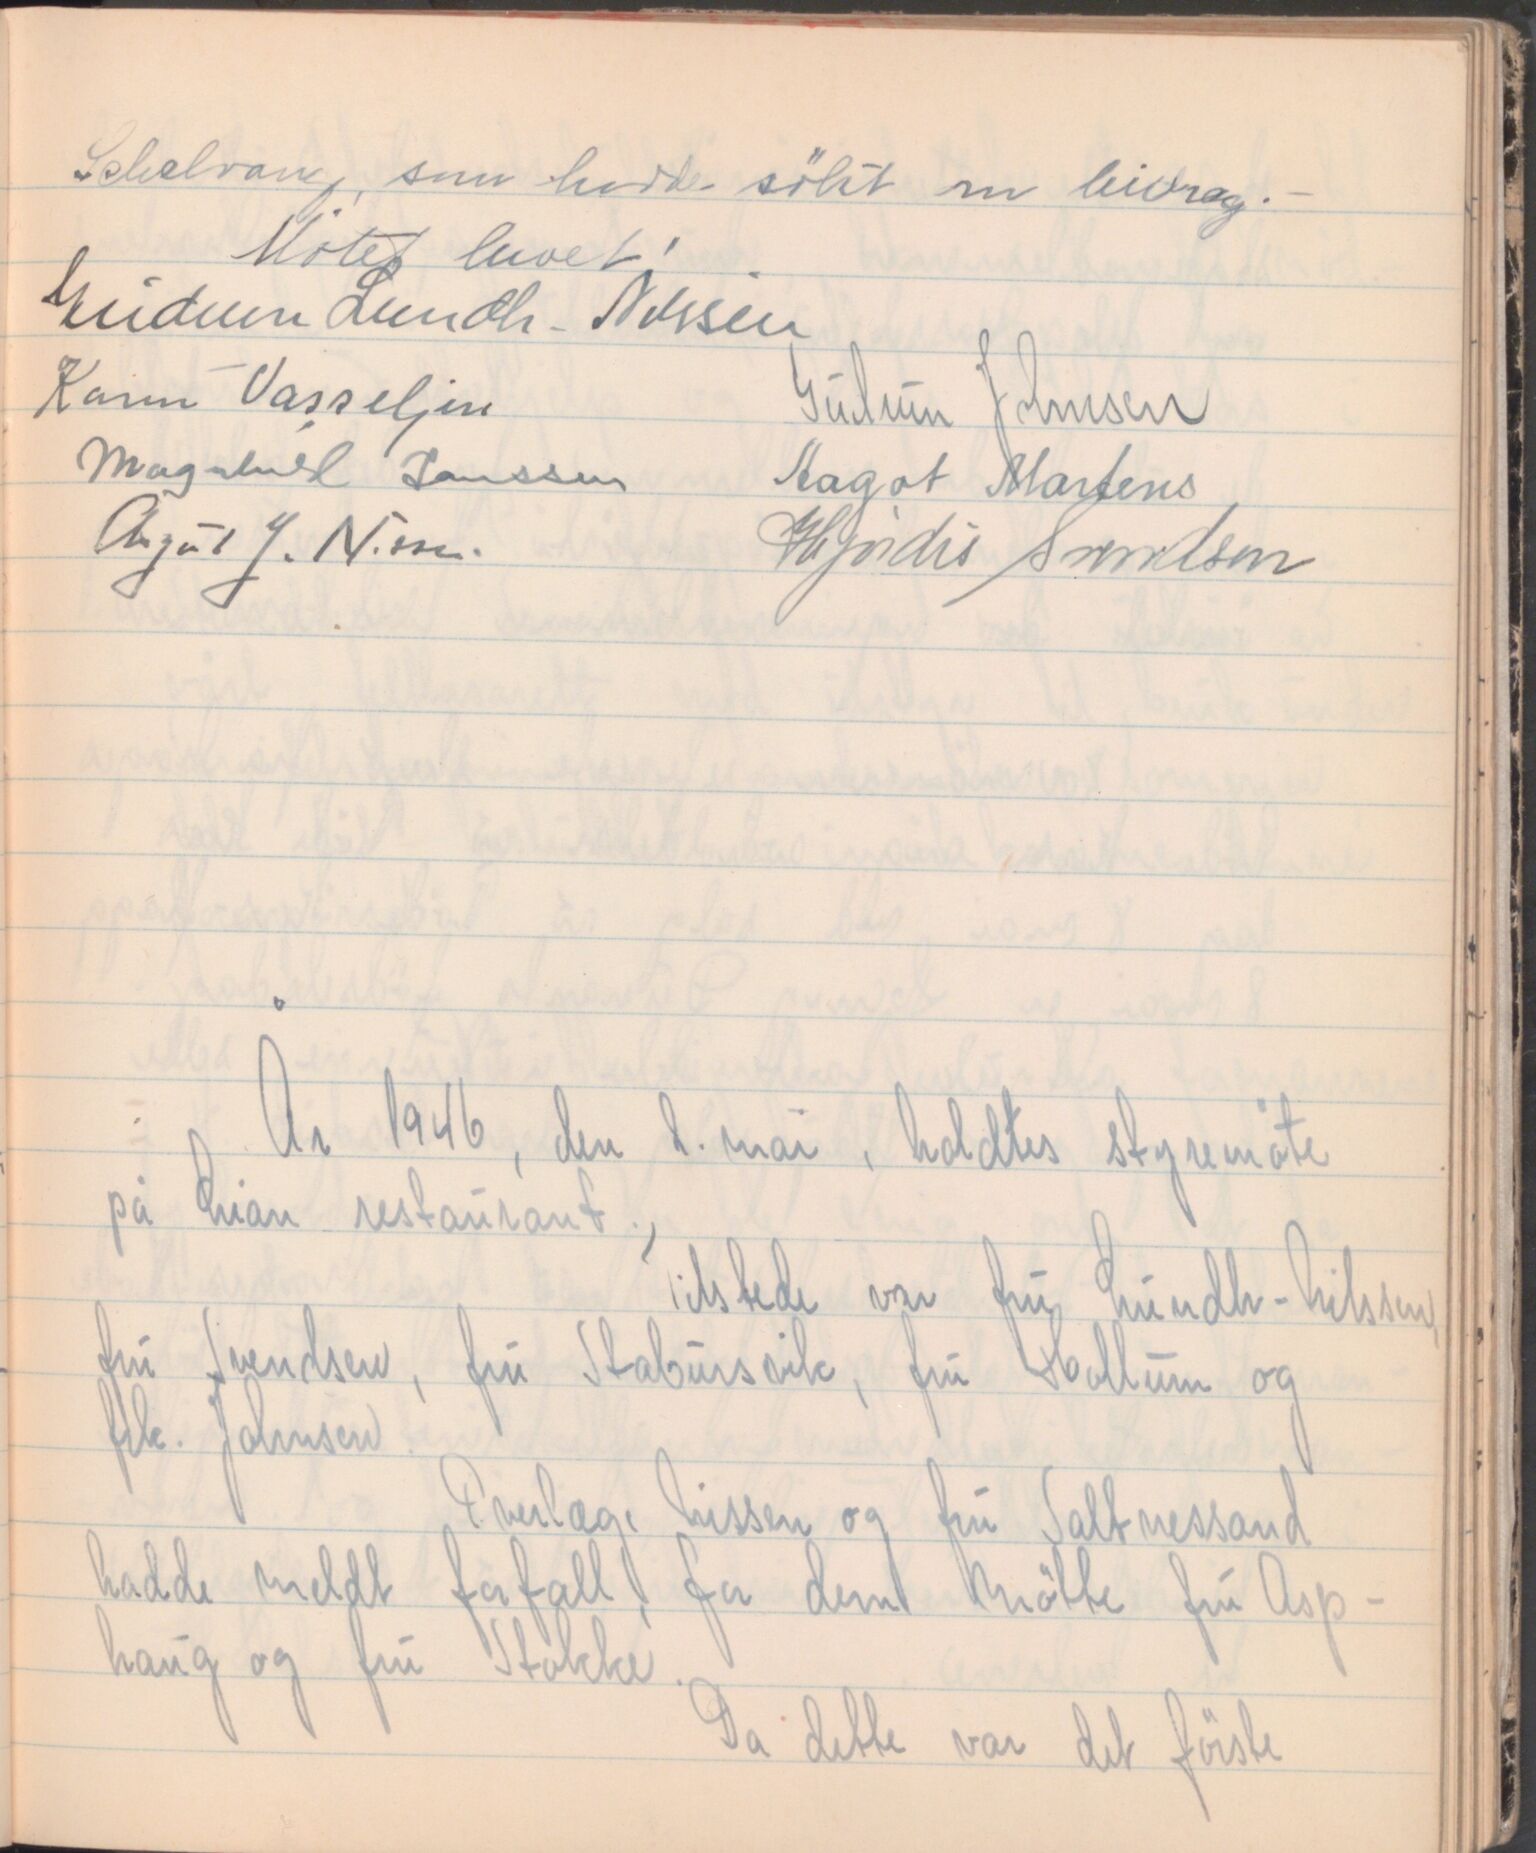 Schelvang, som hadde sökt om bidrag. –
Mötet hevet!
Gudrun Lundh-Nilssen
Karin Vasseljen Gudrun Johnsen
Magnhild Janssen Aagot Martens
August J. Nissen. Hjördis Svendsen
År 1946, den 2. mai, holdtes styremöte
på Lian restaurant.,
Tilstede var frü Lündh-Nilssen,
frü Svendsen, frü Stabürsvik, frü Hollüm og
frk. Johnsen.
Overlæge Nissen og frü Saltnessand
hadde meldt forfall, for dem mötte frü Asp-
haüg og frü Stokke.
Da dette var det förste